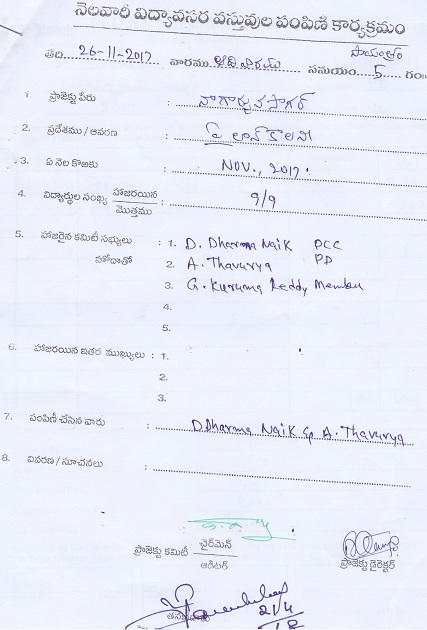 నెలవారి విద్యావసర వస్తువుల పంపిణి కార్యక్రమం
తేది 26-11-2017 వారము ఆదివారము సమయం 5 గం॥
సాయంత్రం
1. ప్రాజెక్టు పేరు : నాగార్జునసాగర్
2. ప్రదేశము / ఆవరణ : పైలాన్ కాలని
3. ఏ నెల కొఱకు : NOV., 2017.
4. విద్యార్థుల సంఖ్య హాజరయిన / మొత్తము : 9/9
5. హాజరైన కమిటీ సభ్యులు : 1. D. Dharma Naik PCC
హోదాతో 2. A. Thavurya PD
3. G. Kuruma Reddy Member
4.
5.
6. హాజరయిన ఇతర ముఖ్యులు : 1.
2.
3.
7. పంపిణీ చేసిన వారు : D Dharma Naik & A. Thavurya
8. వివరణ / సూచనలు :
ప్రాజెక్టు కమిటీ చైర్‌మెన్ / ఆడిటర్
ప్రాజెక్టు డైరెక్టర్
21/4
18